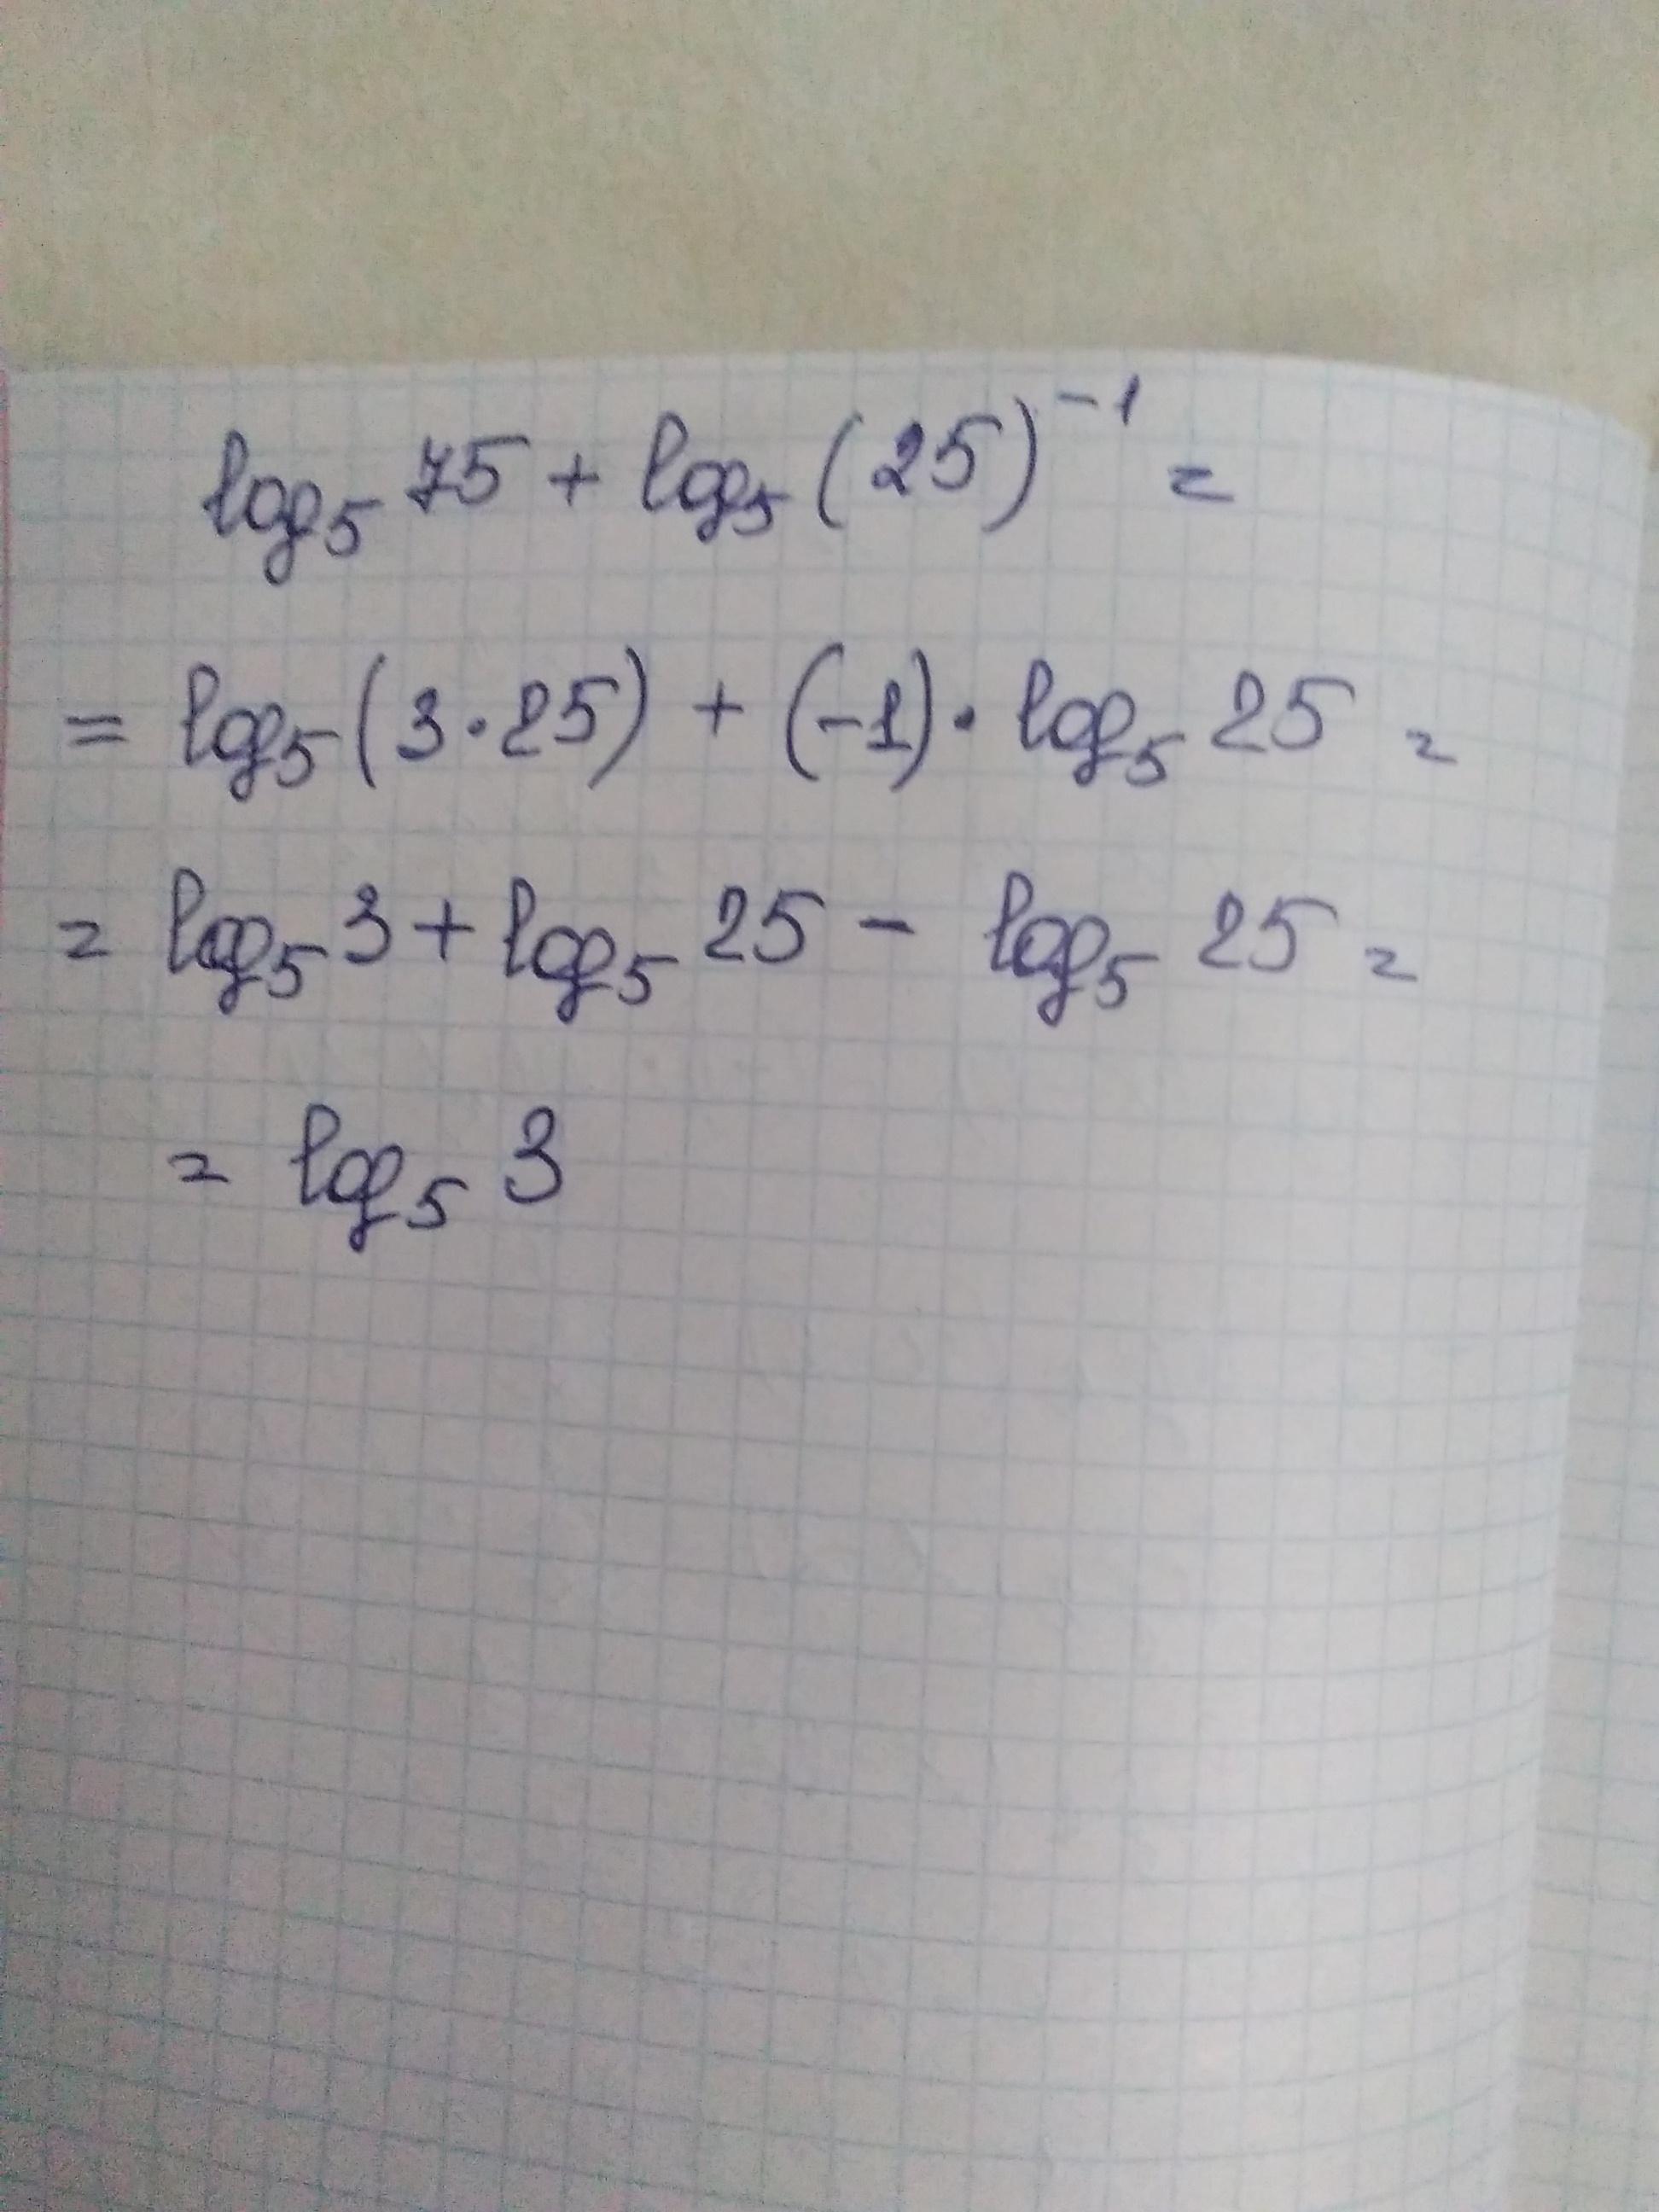 log₅ 75 + log₅ (25)⁻¹ =
= log₅ (3 · 25) + (-1) · log₅ 25 =
= log₅ 3 + log₅ 25 - log₅ 25 =
= log₅ 3